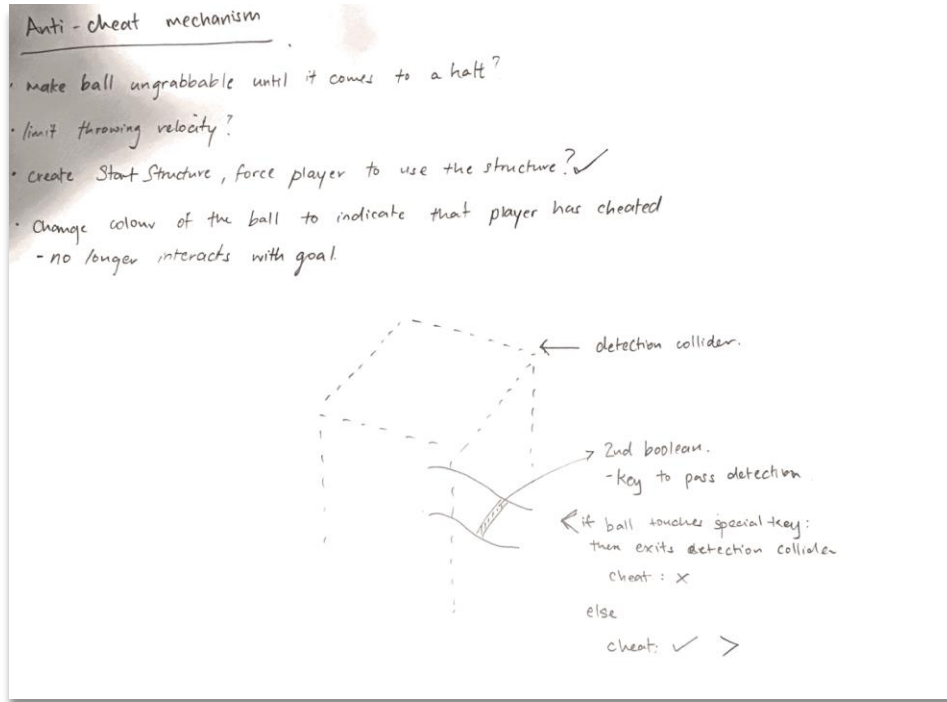 Anti-cheat mechanism
• Make ball ungrabbable until it comes to a halt?
• limit throwing velocity?
• Create Start Structure, force player to use the structure? ✓
• Change colour of the ball to indicate that player has cheated
- no longer interacts with goal.
← detection collider.
→ 2nd boolean.
- key to pass detection
< if ball touches special key:
then exits detection collider
cheat : x
else
cheat: ✓ >